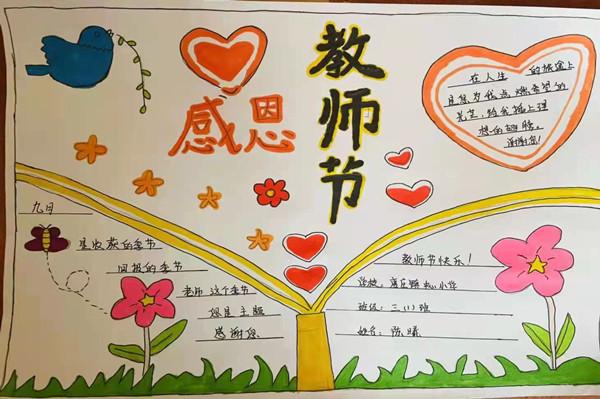 感恩
教师节
在人生 的旅途上
是您为我点燃希望的
光芒,给我插上理
想的翅膀。
谢谢您!
九月
是收获的季节
回报的季节
老师 这个季节
您是主题
感谢您
教师节快乐!
学校:
班级:三(1)班
姓名: